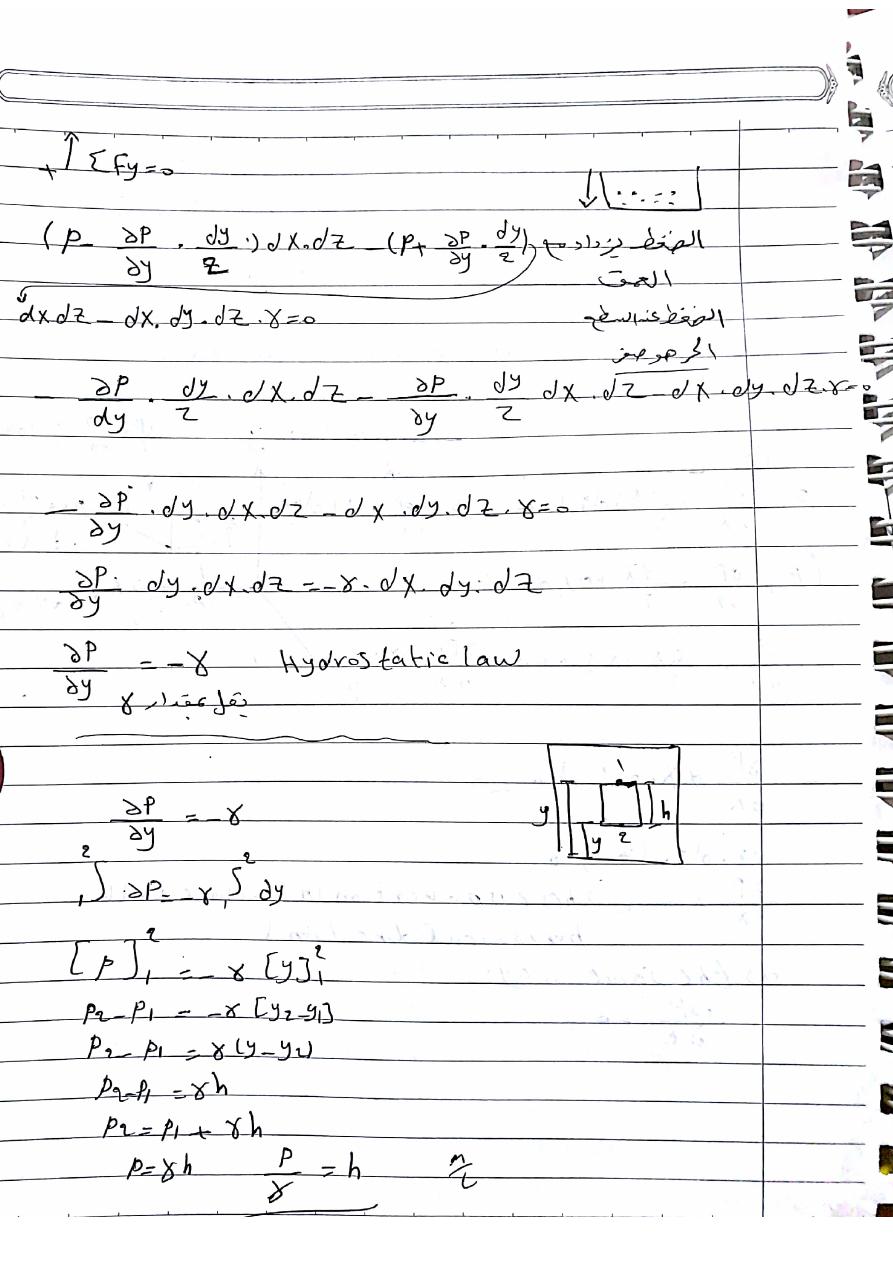 +↑ ΣFy=0
(P - ∂P/∂y . dy/2) dx.dz - (P + ∂P/∂y . dy/2)
الضغط يزداد مع
العمق
dxdz - dx.dy.dz.γ=0
الضغط عند السطح
الحر هو صفر
- ∂P/dy . dy/2 . dx.dz - ∂P/∂y . dy/2 dx.dz - dx.dy.dz.γ=0
- ∂P/∂y . dy.dx.dz - dx.dy.dz.γ=0
∂P/∂y dy.dx.dz = -γ. dx. dy. dz
∂P/∂y = -γ Hydrostatic law
يقل بمقدار γ
1
y h
y 2
∂P/∂y = -γ
₁∫² ∂P = -γ ₁∫² ∂y
[P]₁² = -γ [y]₁²
P2 - P1 = -γ [y2 - y1]
P2 - P1 = γ (y - y2)
P2 - P1 = γh
P2 = P1 + γh
P = γh P/γ = h